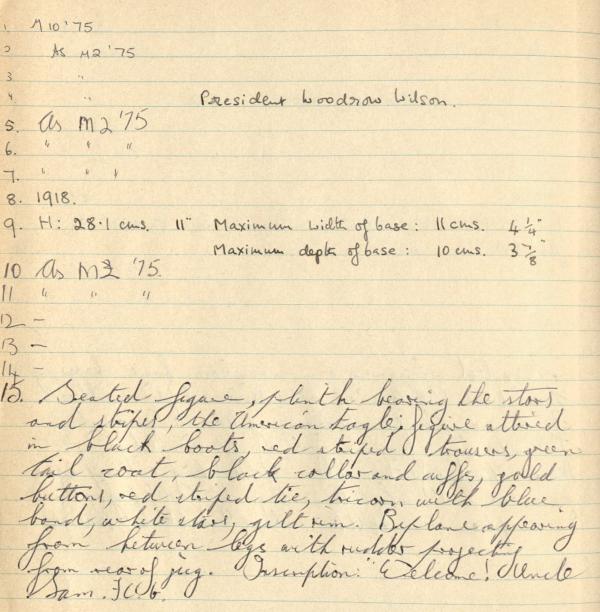 1. M 10 '75
2 As M2 '75
3 "
4 " President Woodrow Wilson.
5. As M2 '75
6. " " "
7. " " "
8. 1918.
9. H: 28.1 cms. 11" Maximum width of base: 11 cms. 4 1/4"
Maximum depth of base: 10 cms. 3 7/8"
10 As M2 '75.
11 " " "
12 -
13 -
14 -
15. Seated figure, plinth bearing the stars
and stripes, the American Eagle; figure attired
in black boots, red striped trousers, green
tail coat, black collar and cuffs, gold
buttons, red striped tie, tricorn with blue
band, white stars, gilt rim. Biplane appearing
from between legs with rudder projecting
from rear of jug. Inscription: "Welcome! Uncle
Sam.